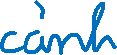 cành